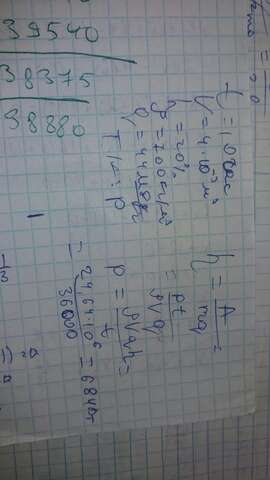 39540
38375
38880
t = 10час
V = 4·10⁻³ м³
= 20%
ρ = 700 кг/м³
q = 44
P
η = A/mq =
= Pt/ρVq
P = ρVqη/t =
= 24,64·10⁶/36000 = 684Вт